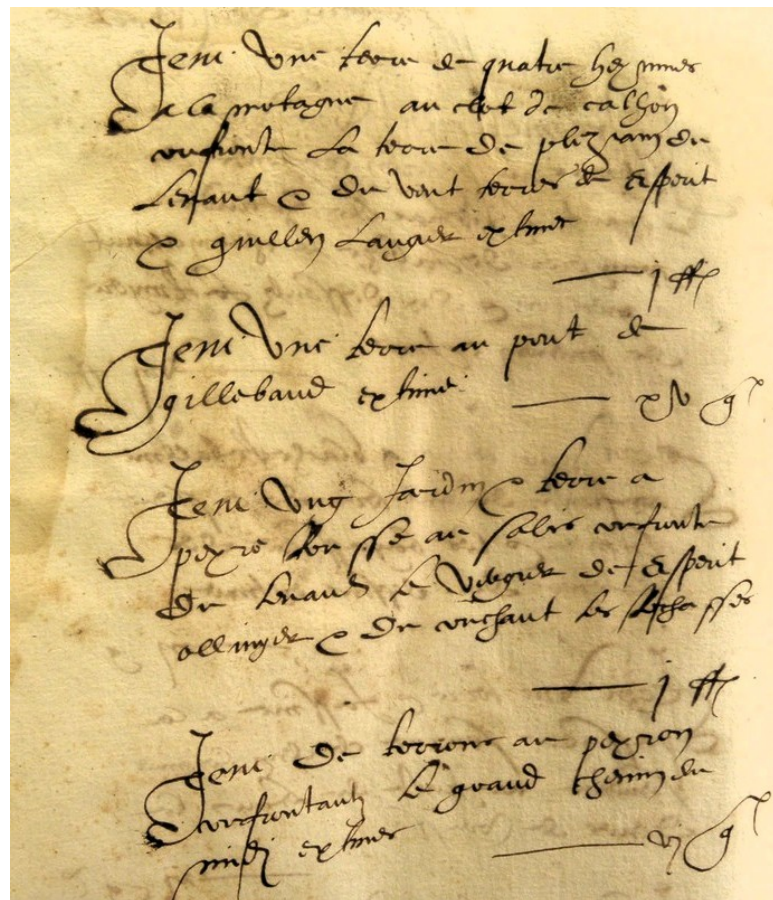 Item une terre de quatre heymines
a la motagne au clot de calhon
confronte la terre de plezian du
levant & du vent terres de Esperit
& guillen Laugier extimee
j ff
Item une terre au pont de
gillebaud extime
xv g
Item ung Jardin & terre a
peyre au salis confronte
du levant le vergier de Esperit
ollivyer & du couchant les
j ff
Item de terrone au peyron
confrontant le grand chemin du
midi extimee
vj g